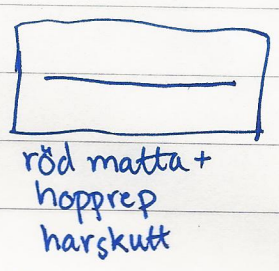 röd matta +
hopprep
harskutt